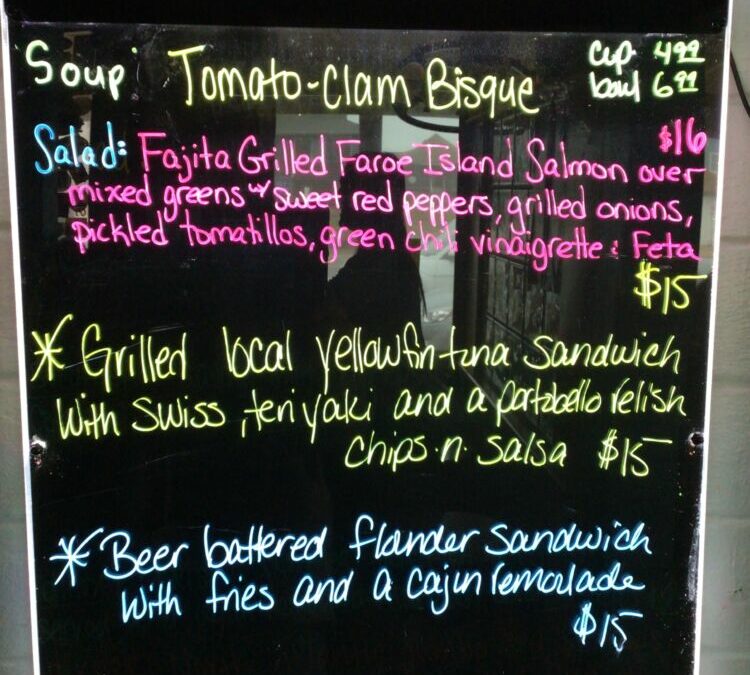 Soup Tomato-Clam Bisque cup 4.99
bowl 6.99
$16
Salad: Fajita Grilled Faroe Island Salmon over
mixed greens w/ sweet red peppers, grilled onions,
pickled tomatillos, green chili vinaigrette : Feta
$15
* Grilled local yellowfin tuna sandwich
with swiss, teriyaki and a portabello relish
chips.n. salsa $15
* Beer battered flounder sandwich
with fries and a cajun remoulade
$15